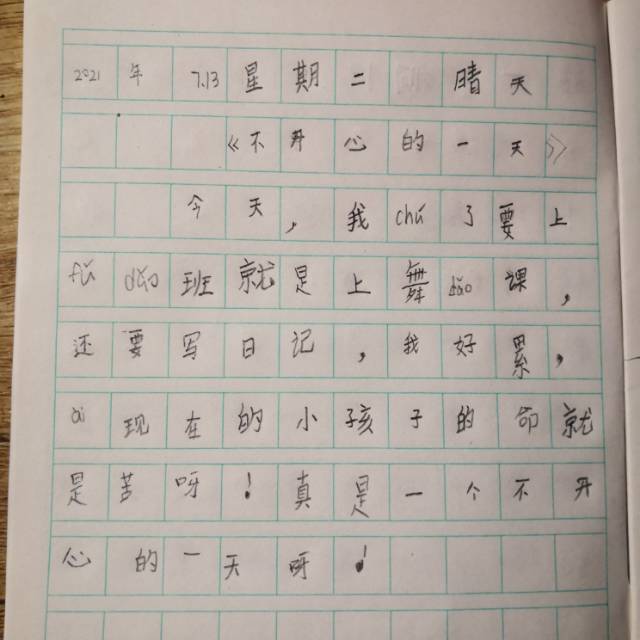 2021年 7.13 星期二 晴天
《不开心的一天》
今天，我chú了要上
fǔ dǎo班就是上舞dǎo课，
还要写日记，我好累，
ai现在的小孩子的命就
是苦呀！真是一个不开
心的一天呀！